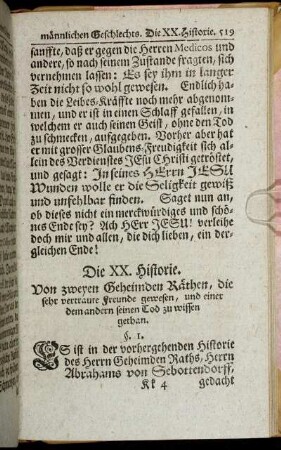 männlichen Geschlechts. Die XX. Historie. 519
sanffte, daß er gegen die Herren Medicos und
andere, so nach seinem Zustande fragten, sich
vernehmen lassen: Es sey ihm in langer
Zeit nicht so wohl gewesen. Endlich ha-
ben die Leibes-Kräffte noch mehr abgenom-
men, und er ist in einen Schlaff gefallen, in
welchem er auch seinen Geist, ohne den Tod
zu schmecken, aufgegeben. Vorher aber hat
er mit grosser Glaubens-Freudigkeit sich al-
lein des Verdienstes JEsu Christi getröstet,
und gesagt: In seines HErrn JESU
Wunden wolle er die Seligkeit gewiß
und unfehlbar finden. Saget nun an,
ob dieses nicht ein merckwürdiges und schö-
nes Ende sey? Ach HErr JESU! verleihe
doch mir und allen, die dich lieben, ein der-
gleichen Ende!
Die XX. Historie.
Von zweyen Geheimden Räthen, die
sehr vertraute Freunde gewesen, und einer
dem andern seinen Tod zu wissen
gethan.
§. 1.
ES ist in der vorhergehenden Historie
des Herrn Geheimden Raths, Herrn
Abrahams von Sebottendorff,
Kk 4 gedacht